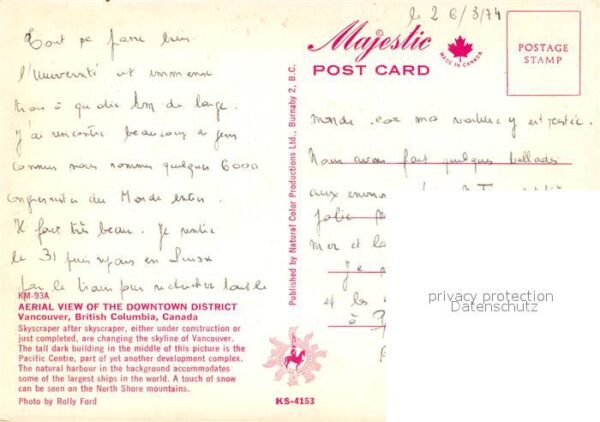 le 26/8/74
Tout se passe bien.
l'Université est immense
trois à quatre km de large.
J'ai rencontré beaucoup de gens
connus nous sommes quelques 6000
du Monde entier
Il fait très beau. Je
le 31 puis en
par le train pour
KM-93A
AERIAL VIEW OF THE DOWNTOWN DISTRICT
Vancouver, British Columbia, Canada
Skyscraper after skyscraper, either under construction or
just completed, are changing the skyline of Vancouver.
The tall dark building in the middle of this picture is the
Pacific Centre, part of yet another development complex.
The natural harbour in the background accommodates
some of the largest ships in the world. A touch of snow
can be seen on the North Shore mountains.
Photo by Rolly Ford
Published by Natural Color Productions Ltd., Burnaby 2, B.C.
Majestic
POST CARD
MADE IN CANADA
POSTAGE
STAMP
monde car ma y est restée.
Nous avons fait quelques ballades
aux
Jolie
mer et la
Je
et les
à
KS-4153
privacy protection
Datenschutz